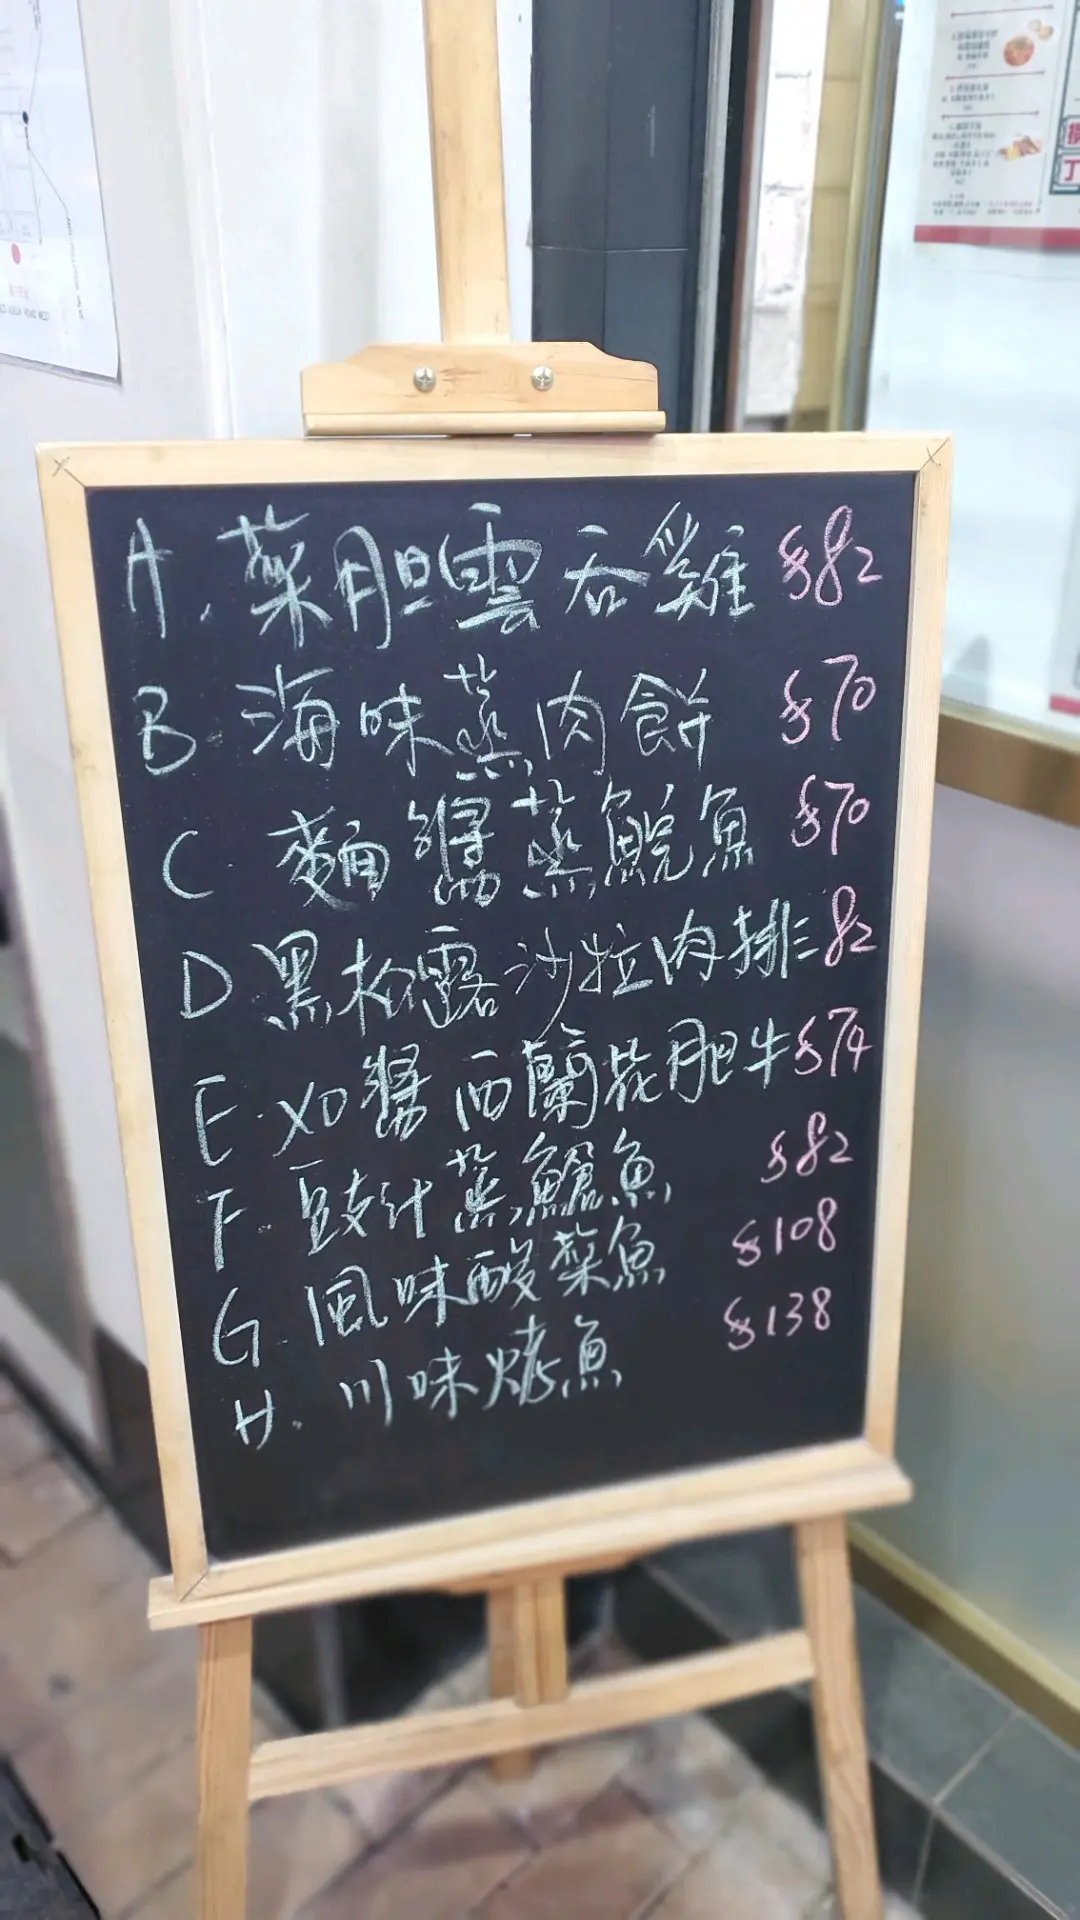 A. 藥胆雲吞雞 $82
B. 海味蒸肉餅 $70
C. 麵醬蒸鯇魚 $70
D 黑松露沙拉肉排 82
E. XO醬西蘭花胆牛 $74
F. 豆豉汁蒸鱠魚 $82
G. 風味酸菜魚 $108
H. 川味烤魚 $138